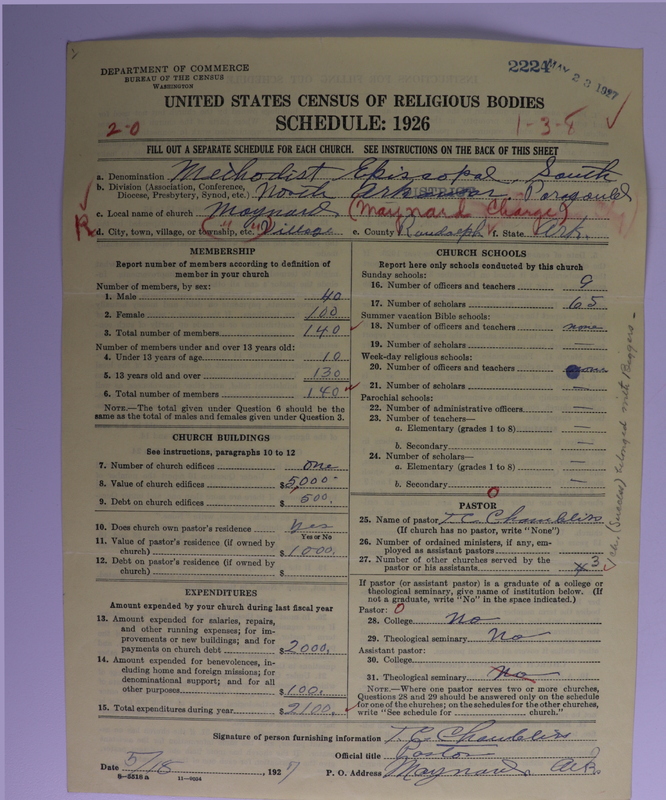 DEPARTMENT OF COMMERCE
BUREAU OF THE CENSUS
WASHINGTON
2224
MAY 23 1927
UNITED STATES CENSUS OF RELIGIOUS BODIES
SCHEDULE: 1926
2-0
1-3-8
FILL OUT A SEPARATE SCHEDULE FOR EACH CHURCH. SEE INSTRUCTIONS ON THE BACK OF THIS SHEET
a. Denomination Methodist Episcopal, South
b. Division (Association, Conference, Diocese, Presbytery, Synod, etc.) North Ark Paragould
c. Local name of church Maynard (Maynard Charge)
R
d. City, town, village, or township, etc. Village e. County Randolph f. State Ark.
MEMBERSHIP
Report number of members according to definition of
member in your church
Number of members, by sex:
1. Male 40
2. Female 100
3. Total number of members 140
Number of members under and over 13 years old:
4. Under 13 years of age 10
5. 13 years old and over 130
6. Total number of members 140
NOTE.—The total given under Question 6 should be
same as the total of males and females given under Question 3.
CHURCH BUILDINGS
See instructions, paragraphs 10 to 12
7. Number of church edifices one
8. Value of church edifices $5,000
9. Debt on church edifices $ 600.
10. Does church own pastor's residence yes
Yes or No
11. Value of pastor's residence (if owned by
church) $1000.
12. Debt on pastor's residence (if owned by
church) $
EXPENDITURES
Amount expended by your church during last fiscal year
13. Amount expended for salaries, repairs,
and other running expenses; for im-
provements or new buildings; and for
payments on church debt $2000.
14. Amount expended for benevolences, in-
cluding home and foreign missions; for
denominational support; and for all
other purposes $100.
15. Total expenditures during year $2100.
CHURCH SCHOOLS
Report here only schools conducted by this church
Sunday schools:
16. Number of officers and teachers 9
17. Number of scholars 65
Summer vacation Bible schools:
18. Number of officers and teachers none
19. Number of scholars —
Week-day religious schools:
20. Number of officers and teachers
21. Number of scholars —
Parochial schools:
22. Number of administrative officers —
23. Number of teachers—
a. Elementary (grades 1 to 8) —
b. Secondary —
24. Number of scholars—
a. Elementary (grades 1 to 8) —
b. Secondary —
0
PASTOR
25. Name of pastor T. C. Chambliss
(If church has no pastor, write "None")
26. Number of ordained ministers, if any, em-
ployed as assistant pastors
27. Number of other churches served by the
pastor or his assistants 3
If pastor (or assistant pastor) is a graduate of a college or
theological seminary, give name of institution below. (If
not a graduate, write "No" in the space indicated.)
Pastor: 0
28. College No
29. Theological seminary No
Assistant pastor:
30. College
31. Theological seminary No
NOTE.—Where one pastor serves two or more churches,
Questions 28 and 29 should be answered only on the schedule
for one of the churches; on the schedules for the other churches,
write "See schedule for church."
belonged with Biggers
Signature of person furnishing information T. C. Chambliss
Official title Pastor
Date 5/18, 1927
P. O. Address Maynard, Ark.
8-5518a 11-9024